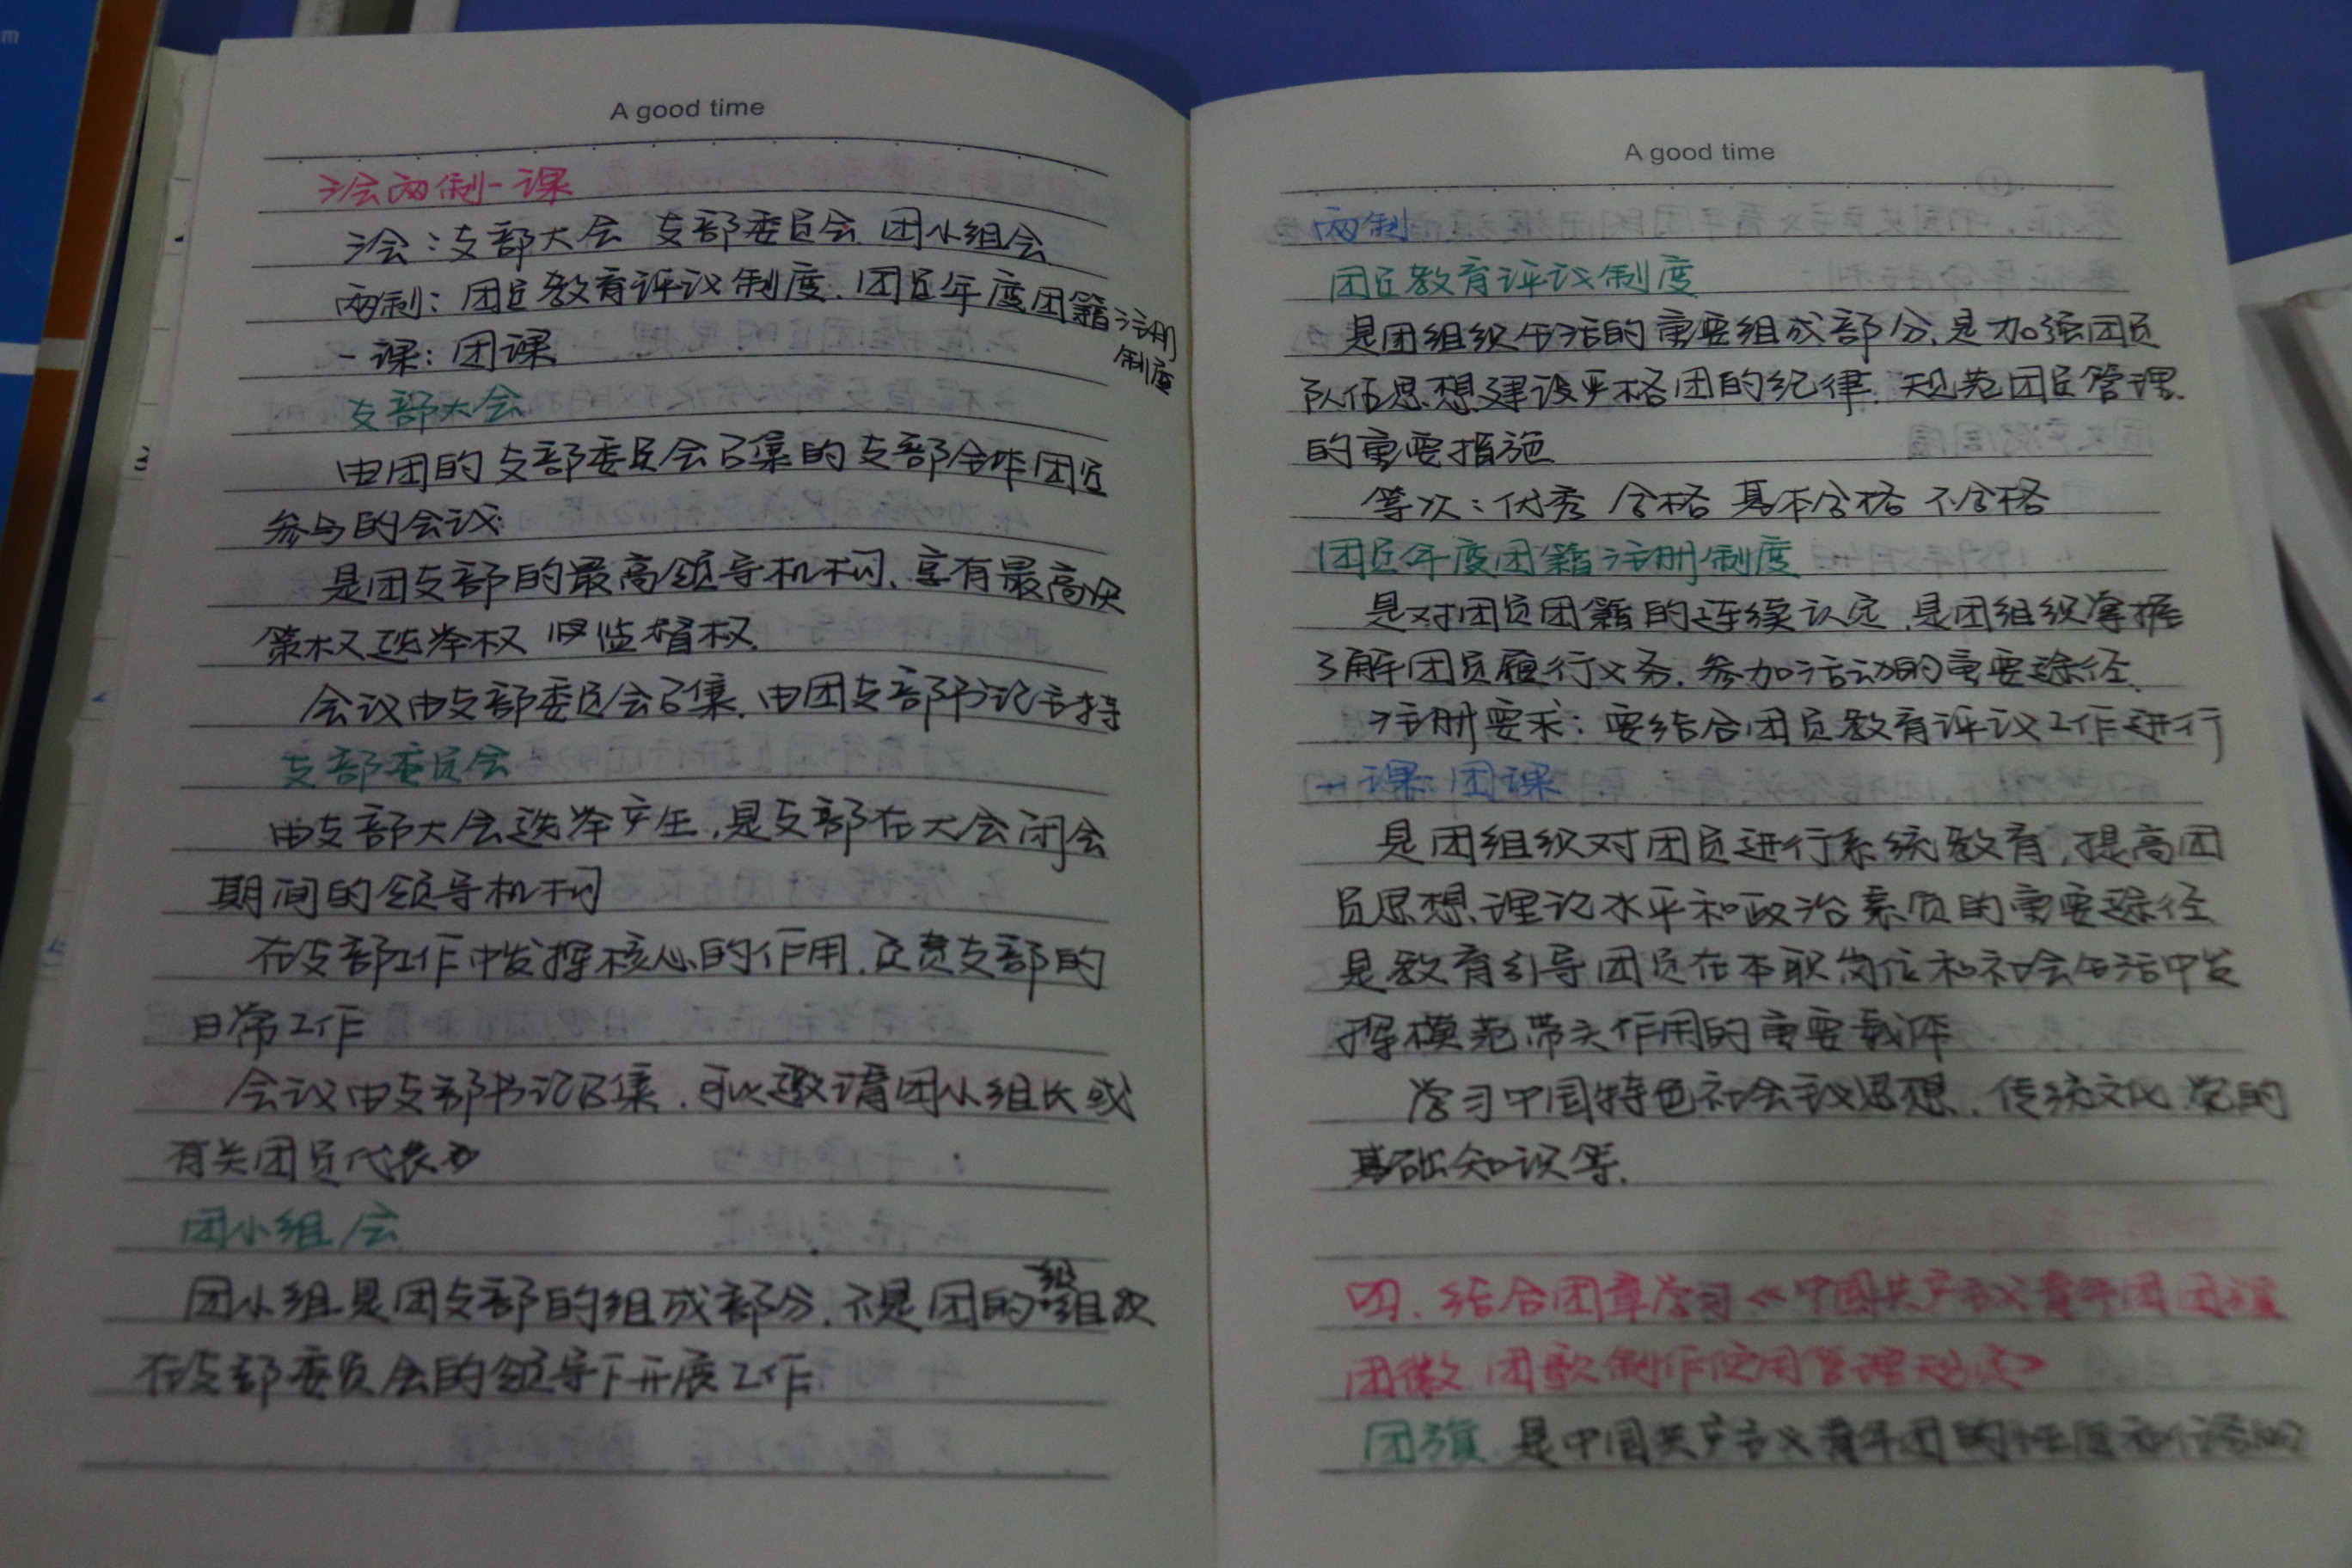 A good time
三会两制一课
三会：支部大会 支部委员会 团小组会
两制：团员教育评议制度、团员年度团籍注册
制度
一课：团课
支部大会
由团的支部委员会召集的支部全体团员
参与的会议
是团支部的最高领导机构、享有最高决
策权 选举权 监督权
会议由支部委员会召集，由团支部书记主持
支部委员会
由支部大会选举产生，是支部在大会闭会
期间的领导机构
在支部工作中发挥核心的作用，负责支部的
日常工作
会议由支部书记召集，可以邀请团小组长或
有关团员代表
团小组会
团小组是团支部的组成部分，不是团的一级组织
在支部委员会的领导下开展工作
A good time
两制
团员教育评议制度
是团组织生活的重要组成部分，是加强团员
队伍思想建设严格团的纪律、规范团员管理
的重要措施
等次：优秀 合格 基本合格 不合格
团员年度团籍注册制度
是对团员团籍的连续认定，是团组织掌握
了解团员履行义务、参加活动的重要途径
注册要求：要结合团员教育评议工作进行
一课：团课
是团组织对团员进行系统教育，提高团
员思想、理论水平和政治素质的重要途径
是教育引导团员在本职岗位和社会生活中发
挥模范带头作用的重要载体
学习中国特色社会主义思想、传统文化、党的
基础知识等.
四、结合团章学习《中国共产主义青年团团旗
团徽 团歌制作使用管理规定》
团旗 是中国共产主义青年团的